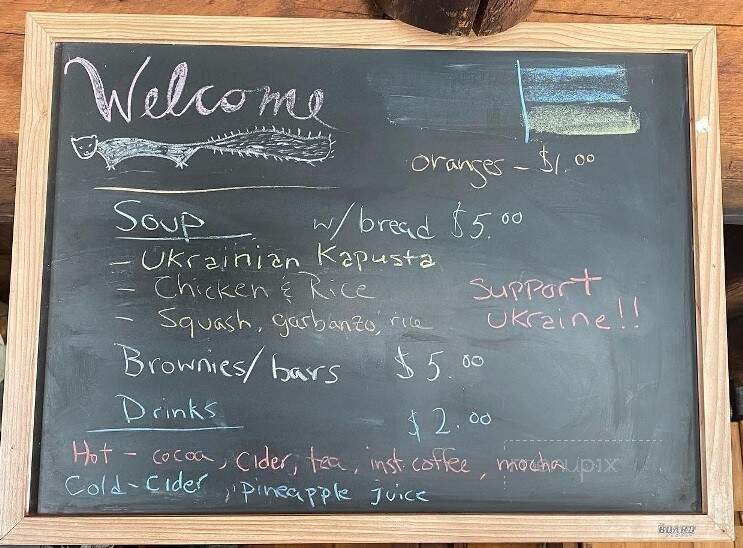 Welcome
oranges - $1.00
Soup w/ bread $5.00
- Ukrainian Kapusta
- Chicken & Rice
- Squash, garbanzo, rice
Support
Ukraine!!
Brownies/bars $5.00
Drinks $2.00
Hot - cocoa, Cider, tea, inst. coffee, mocha
Cold - Cider, pineapple juice